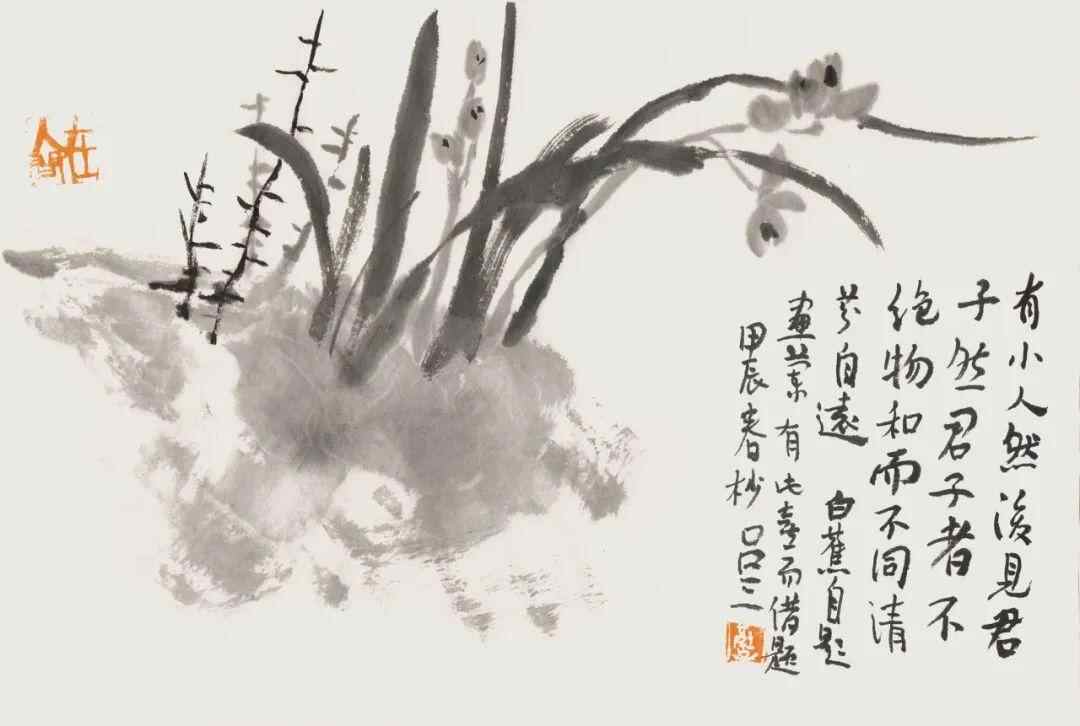 有小人然後見君
子然君子者不
绝物和而不同清
芬自遠 白蕉自題
畫蘭有此意而借題
甲辰春杪